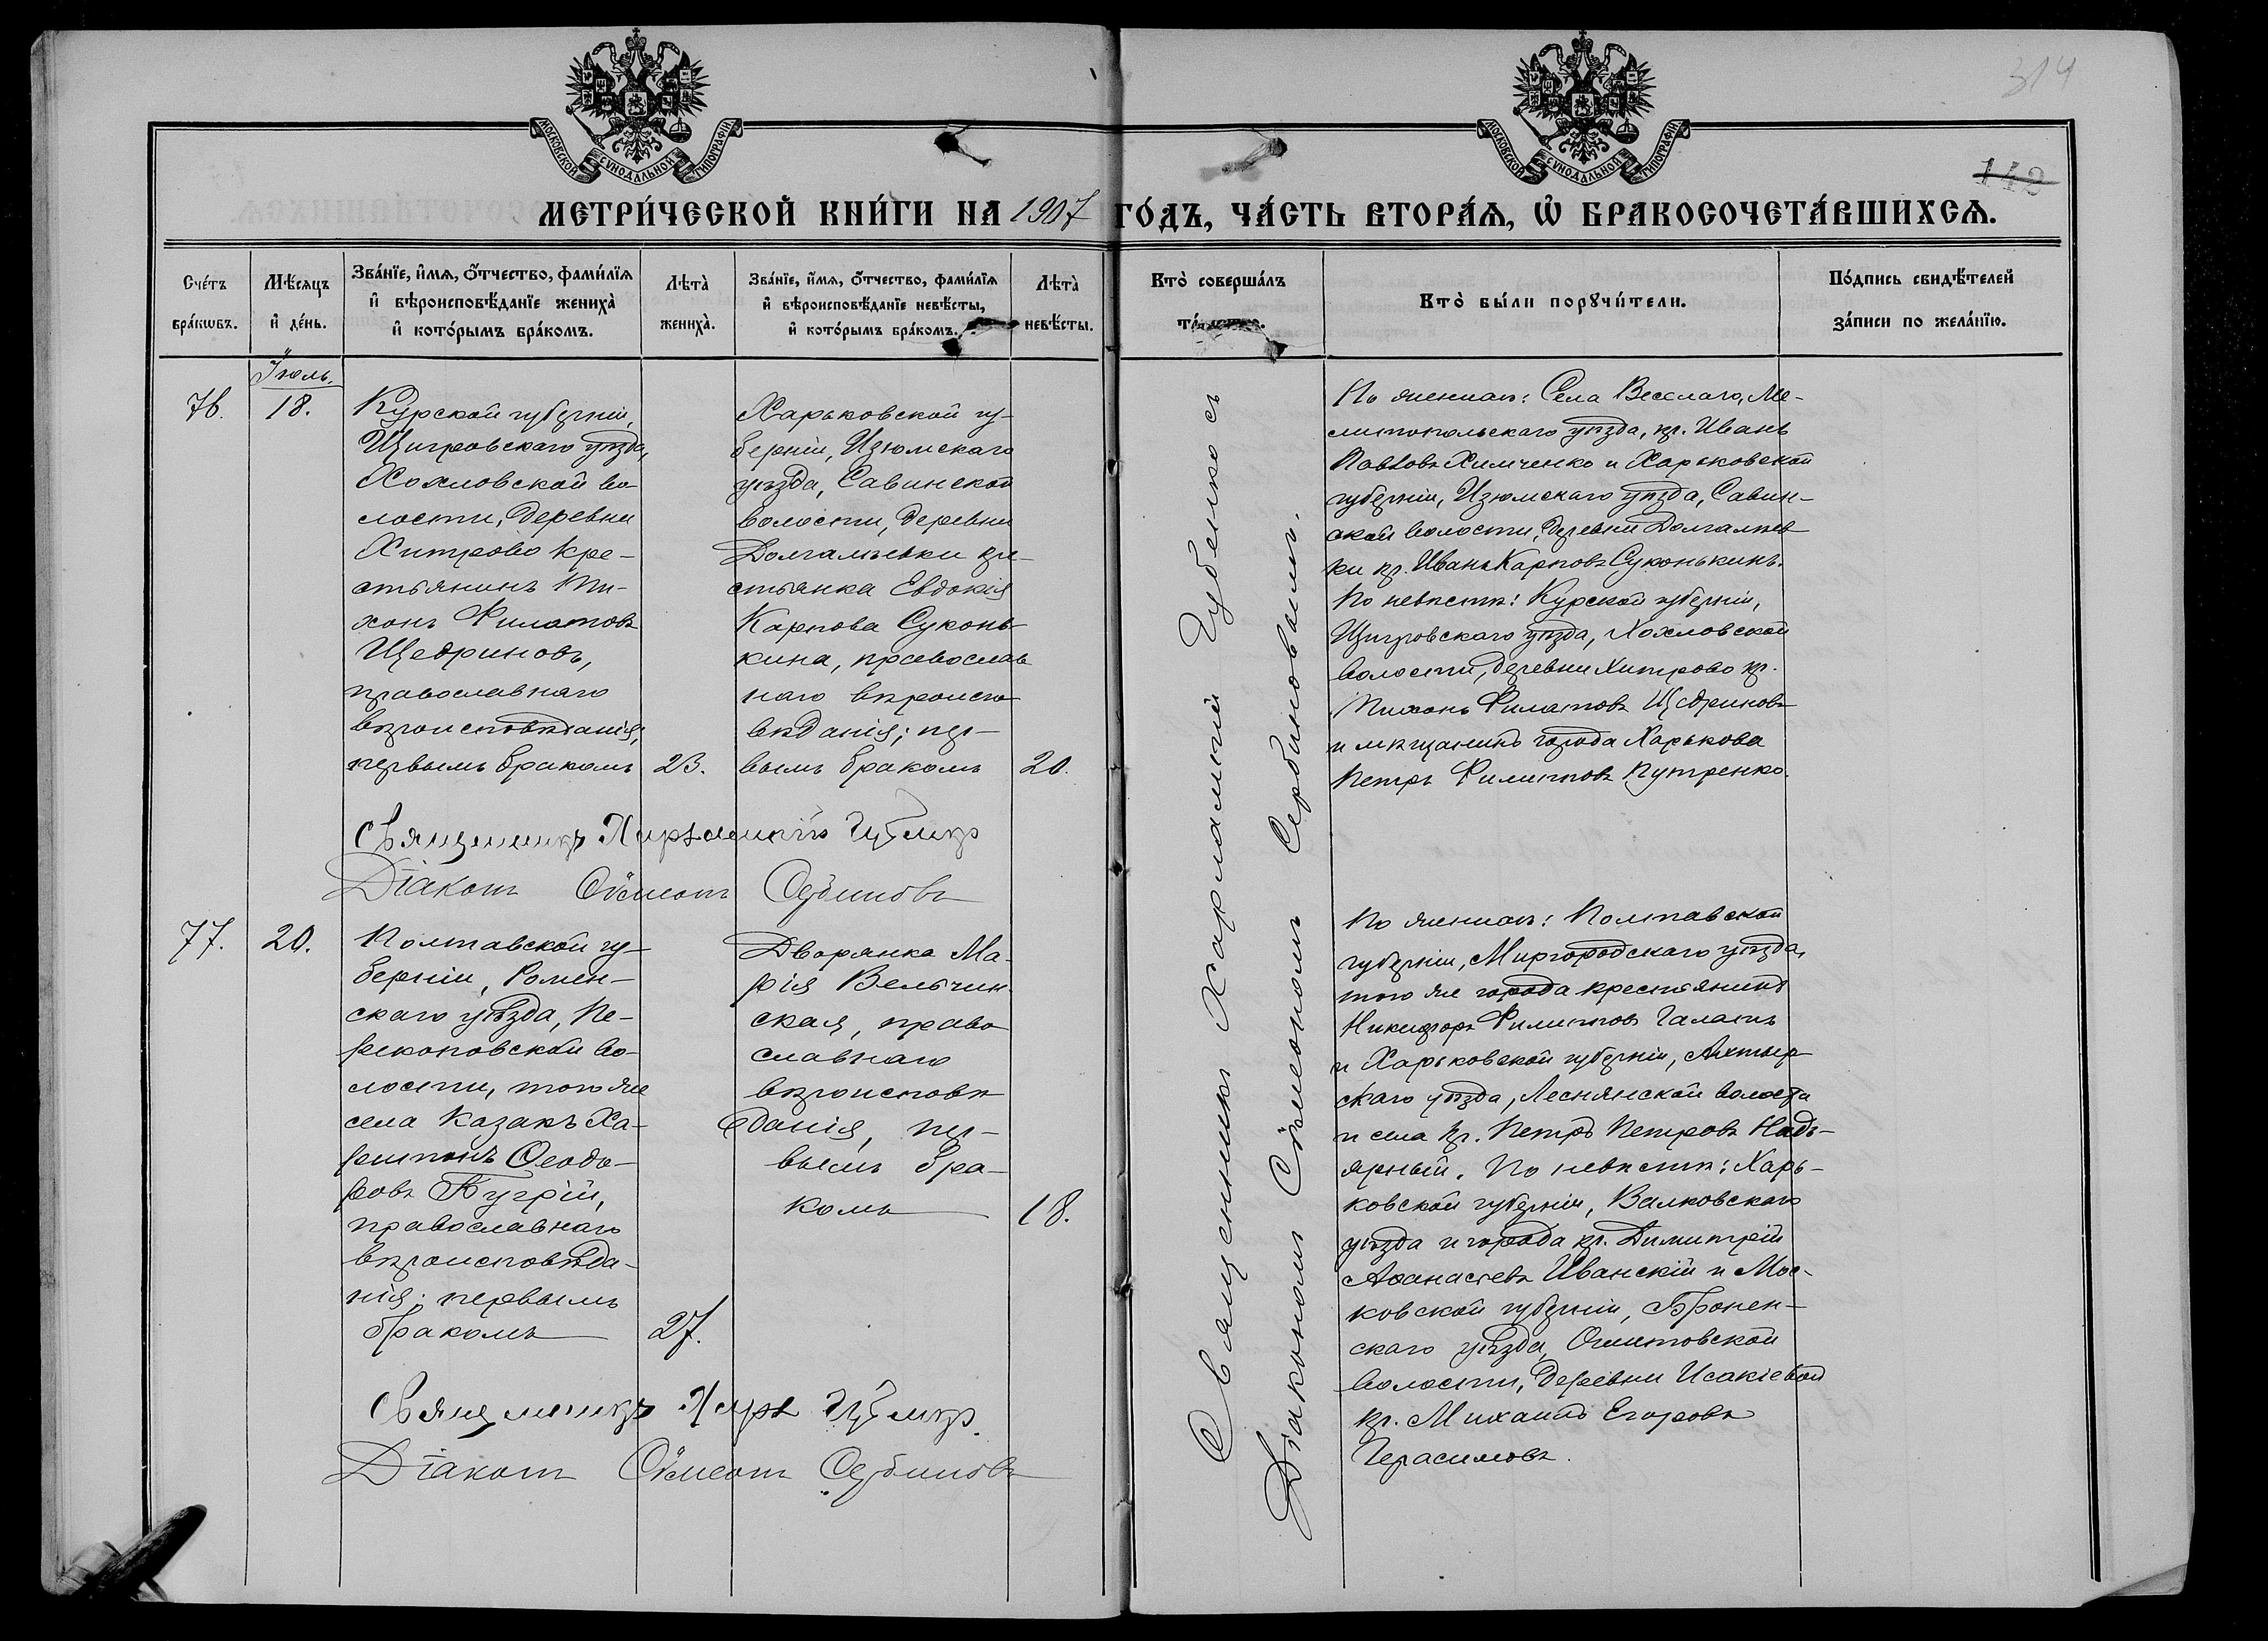 314
142
МОСКОВСКОЙ СѴНОДАЛЬНОЙ ТИПОГРАФІИ
МОСКОВСКОЙ СѴНОДАЛЬНОЙ ТИПОГРАФІИ
МЕТРИ́ЧЕСКОЙ КНИ́ГИ НА 1907 ГО́ДЪ, ЧА́СТЬ ВТОРА́Я, Ѡ БРАКОСОЧЕТА́ВШИХСЯ.
Сче́тъ
бра́кѡвъ.
Мѣ́сяцъ
и де́нь.
Зва́нїе, и́мя, о́тчество, фами́лїя
и вѣроисповѣ́данїе жениха̀
и кото́рымъ бра́комъ.
Лѣ́та̀
жениха̀.
Зва́нїе, и́мя, о́тчество, фами́лїя
и вѣроисповѣ́данїе невѣ́сты,
и кото́рымъ бра́комъ.
Лѣ́та̀
невѣ́сты.
Кто̀ соверша́лъ
Кто̀ бы́ли порꙋчи́тели.
По́дпись свидѣ́телей
за́писи по жела́нїю.
Іюль.
76.
18.
Курской губерніи,
Щигровскаго уѣзда,
Хохловской во-
лости, деревни
Хитрово кре-
стьянинъ Ти-
хонъ Филатовъ
Щедриновъ,
православнаго
вѣроисповѣданія;
первымъ бракомъ
23.
Харьковской гу-
берніи, Изюмскаго
уѣзда, Савинской
волости, деревни
Долгалевки кре-
стьянка Евдокія
Карпова Суконь-
кина, православ
наго вѣроиспо
вѣданія; пер-
вымъ бракомъ
20.
Священникъ Харлампій Губенко съ
Діакономъ Сѵмеономъ Сербиновымъ.
По женихѣ: Села Веселаго, Ме-
литопольскаго уѣзда, кр. Иванъ
Павловъ Химченко и Харьковской
губерніи, Изюмскаго уѣзда, Савин-
ской волости, деревни Долгалев
ки кр. Иванъ Карповъ Суконькинъ.
По невѣстѣ: Курской губерніи,
Щигровскаго уѣзда, Хохловской
волости, деревни Хитрово кр.
Тихонъ Филатовъ Щедриновъ
и мѣщанинъ города Харькова
Петръ Филиповъ Путренко.
Священникъ Харлампій Губенко
Діаконъ Сѵмеонъ Сербиновъ
77.
20.
Полтавской гу-
берніи, Ромен-
скаго уѣзда, Пе-
рекоповской во-
лости, того же
села казакъ Ха-
ритонъ Ѳеодо-
ровъ Бугрій,
православнаго
вѣроисповѣда-
нія; первымъ
бракомъ
27.
Дворянка Ма-
рія Вельчин-
ская, право
славнаго
вѣроисповѣ
данія, пер-
вымъ бра-
комъ
18.
По женихѣ: Полтавской
губерніи, Миргородскаго уѣзда,
того же города крестьянинъ
Никифоръ Филиповъ Галатъ
и Харьковской губерніи, Ахтыр
скаго уѣзда, Леснянской волости
и села кр. Петръ Петровъ Надъ-
ярный. По невѣстѣ: Харь-
ковской губерніи, Валковскаго
уѣзда и города кр. Димитрій
Аѳанасьевъ Иванскій и Мос-
ковской губерніи, Бронен-
скаго уѣзда,
волости, деревни Исакіевой
кр. Михаилъ Егоровъ
Герасимовъ.
Священникъ Харл Губенко
Діаконъ Сѵмеонъ Сербиновъ